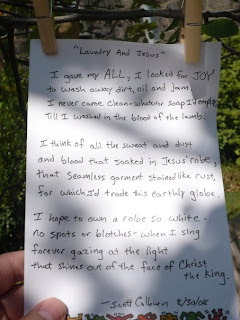 "Laundry And Jesus"
I gave my ALL, I looked for JOY
to wash away dirt, oil and jam.
I never came clean - whatever soap I'd employ
Till I washed in the blood of the lamb.
I think of all the sweat and dust
and blood that soaked in Jesus' robe,
that seamless garment stained like rust,
for which I'd trade this earthly globe
I hope to own a robe so white -
no spots or blotches - when I sing
forever gazing at the light
that shines out of the face of Christ
the King.
- Scott 8/30/08